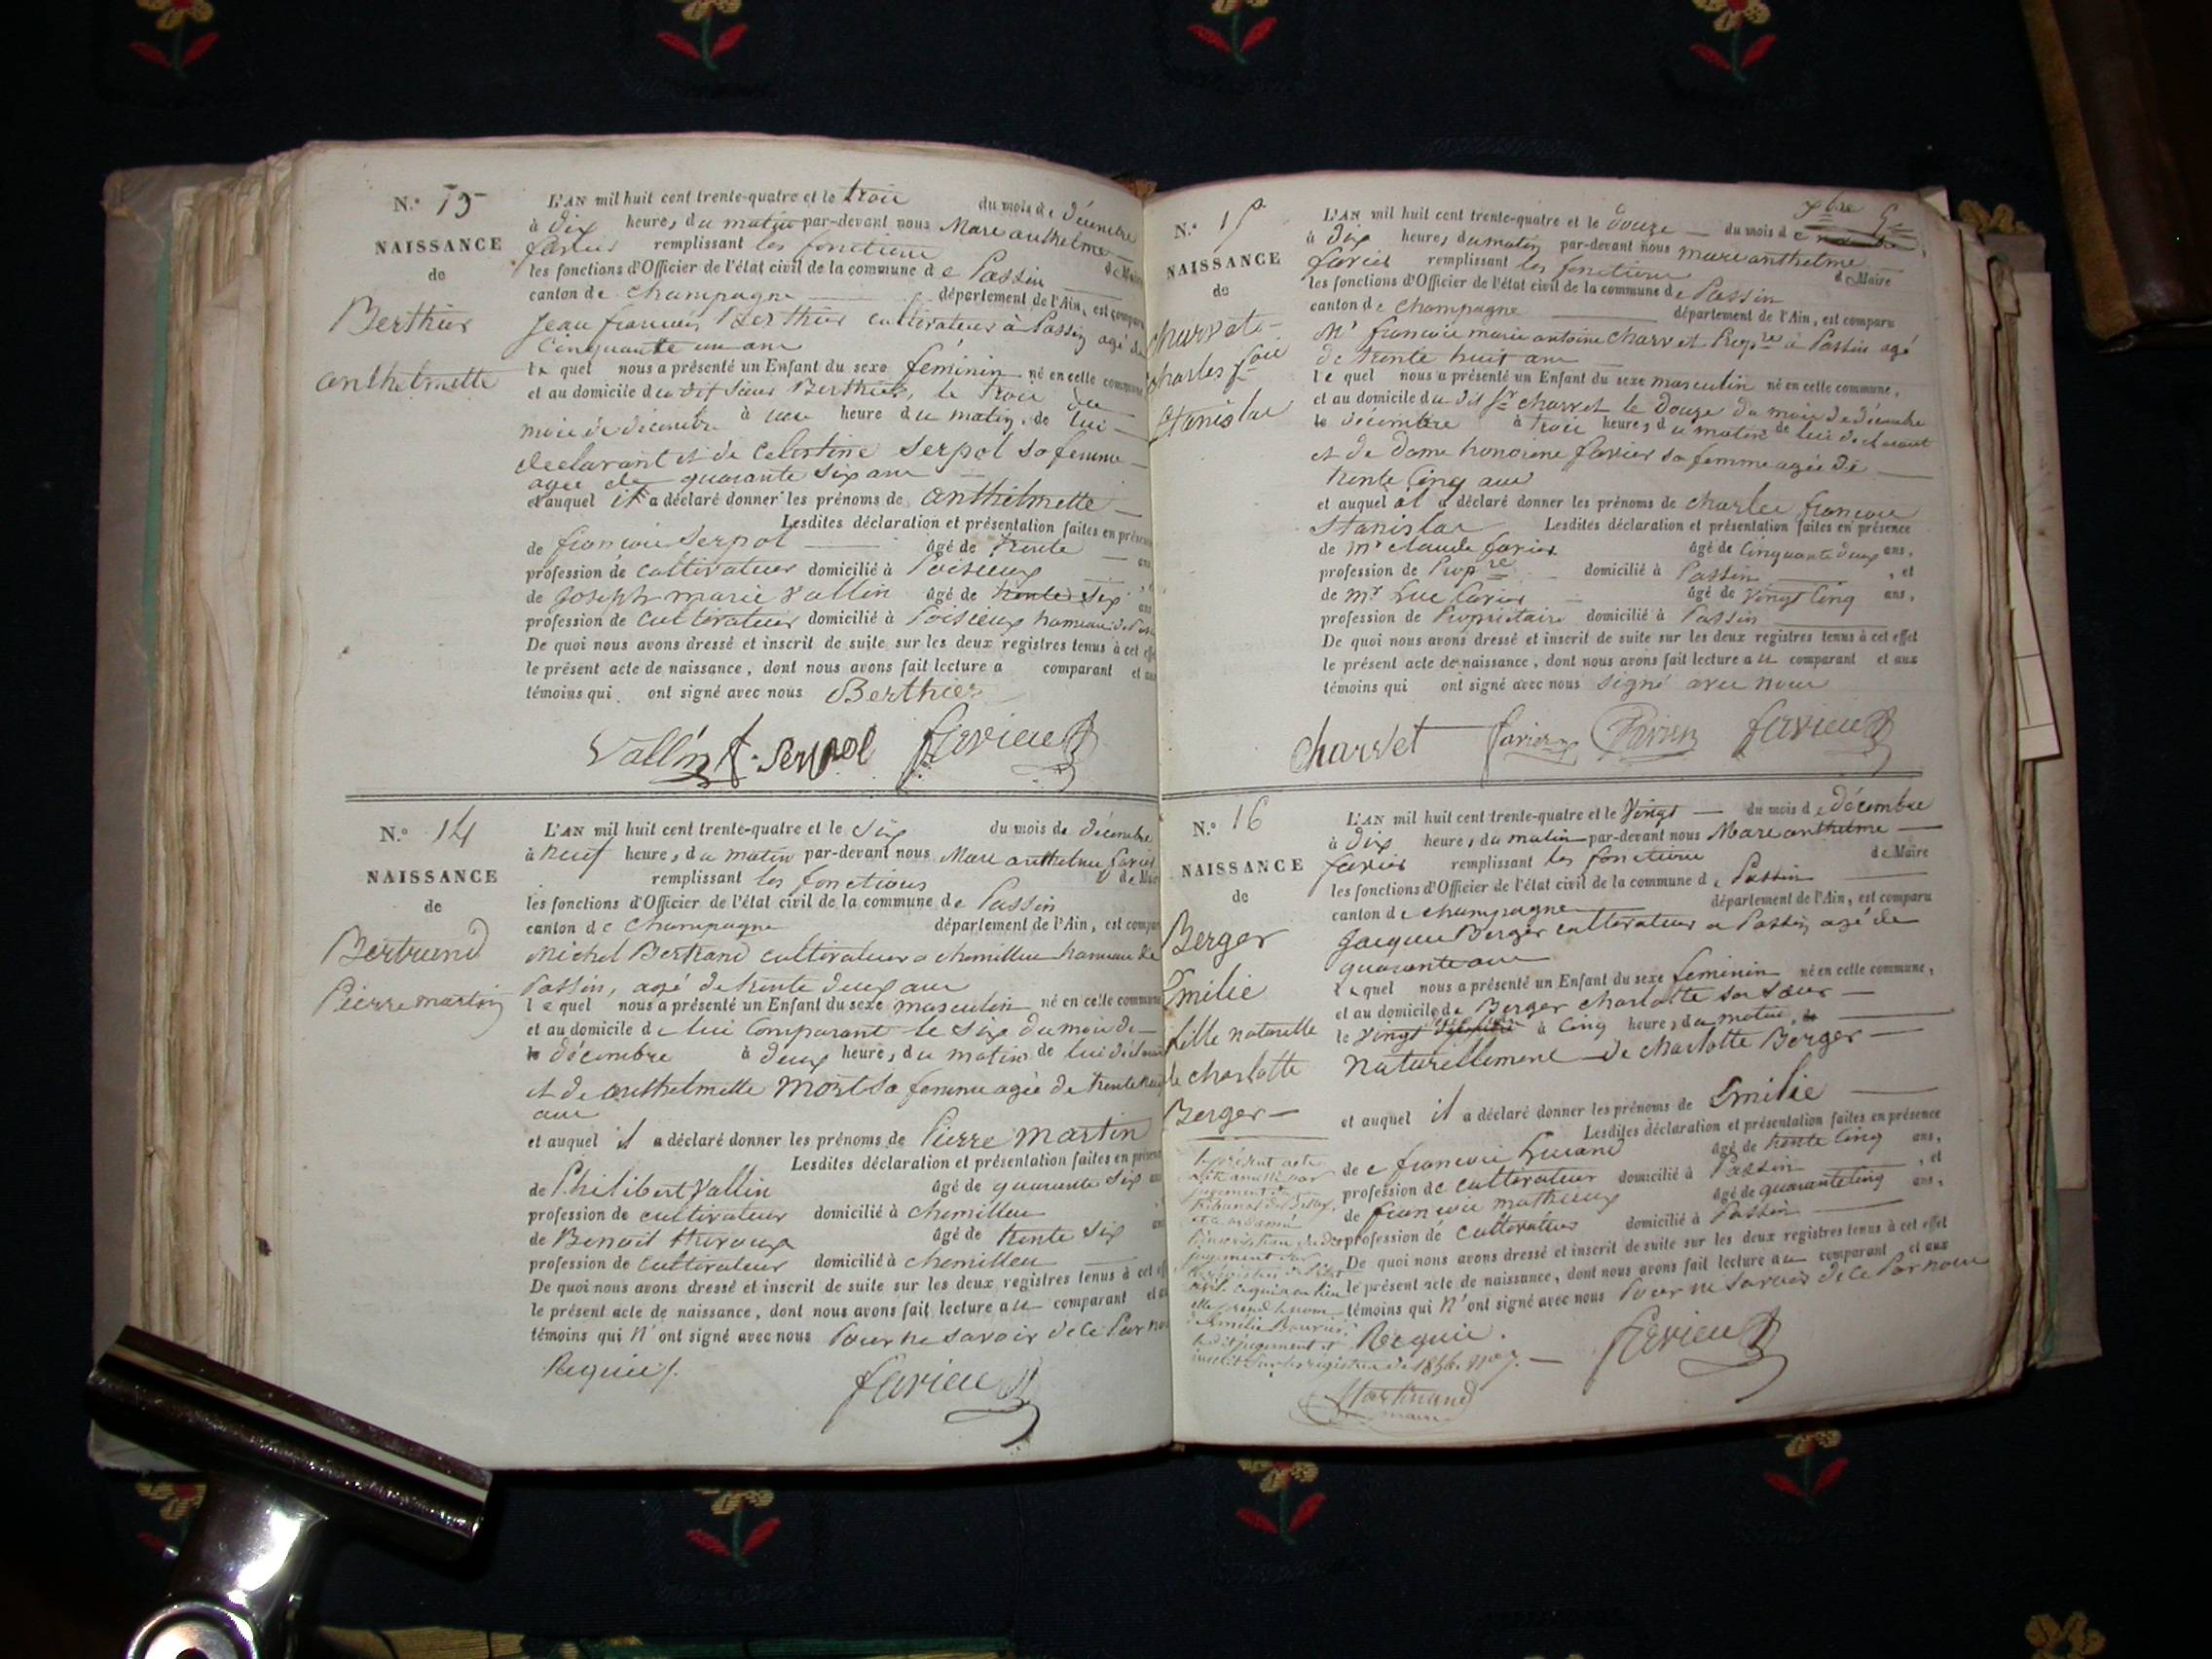 N.º 13
NAISSANCE
de
Berthier
anthelmette
L'AN mil huit cent trente-quatre et le trois du mois de décembre
à dix heures du matin par-devant nous Marc anthelme
favier remplissant les fonctions de Maire
les fonctions d'Officier de l'état civil de la commune de Passin
canton de Champagne département de l'Ain, est comparu
Jean francois Berthier cultivateur à Passin agé de
Cinquante un ans
le quel nous a présenté un Enfant du sexe féminin né en celle commune
et au domicile du dit Sieur Berthier, le trois du
mois de décembre à une heure du matin, de lui
declarant et de Celestine Serpol sa femme
agée de quarante six ans
et auquel il a déclaré donner les prénoms de anthelmette
Lesdites déclaration et présentation faites en présence
de francois Serpol âgé de trente ans
profession de cultivateur domicilié à Poisieux
de Joseph marie Vallin âgé de trente Six ans
profession de cultivateur domicilié à Poisieux hameau de Passin
De quoi nous avons dressé et inscrit de suite sur les deux registres tenus à cet effet
le présent acte de naissance, dont nous avons fait lecture a comparant et aux
témoins qui ont signé avec nous Berthier
Vallin f. Serpol favier
N.º 14
NAISSANCE
de
Bertrand
Pierre martin
L'AN mil huit cent trente-quatre et le Six du mois de décembre
à neuf heures du matin par-devant nous Marc anthelme favier
remplissant les fonctions de Maire
les fonctions d'Officier de l'état civil de la commune de Passin
canton de Champagne département de l'Ain, est comparu
Michel Bertrand cultivateur a chemilleu hameau de
Passin, agé de trente deux ans
le quel nous a présenté un Enfant du sexe masculin né en celle commune
et au domicile de lui Comparant le Six du mois de
le décembre à deux heures du matin de lui déclarant
et de anthelmette Mort sa femme agée de trente neuf
ans
et auquel il a déclaré donner les prénoms de Pierre Martin
Lesdites déclaration et présentation faites en présence
de Philibert Vallin âgé de quarante Six ans
profession de cultivateur domicilié à chemilleu
de Benoit âgé de trente Six ans
profession de Cultivateur domicilié à chemilleu
De quoi nous avons dressé et inscrit de suite sur les deux registres tenus à cet effet
le présent acte de naissance, dont nous avons fait lecture au comparant et aux
témoins qui n'ont signé avec nous Pour ne Savoir de ce Par nous
Requis /. favier
N.º 15
NAISSANCE
de
Charvet
charles f.ois
Stanislas
L'AN mil huit cent trente-quatre et le douze du mois de
à dix heures du matin par-devant nous marc anthelme
favier remplissant les fonctions de Maire
les fonctions d'Officier de l'état civil de la commune de Passin
canton de Champagne département de l'Ain, est comparu
Mr francois marie antoine Charvet Prop.re à Passin agé
de trente huit ans
le quel nous a présenté un Enfant du sexe masculin né en celle commune,
et au domicile du dit Sr Charvet le douze du mois de décembre
le décembre à trois heures du matin de lui declarant
et de Dame honorine favier sa femme agée de
trente Cinq ans
et auquel il a déclaré donner les prénoms de charles francois
Stanislas Lesdites déclaration et présentation faites en présence
de mr claude favier âgé de Cinquante deux ans,
profession de Prop.re domicilié à Passin, et
de mr Luc favier âgé de vingt Cinq ans,
profession de Propriétaire domicilié à Passin
De quoi nous avons dressé et inscrit de suite sur les deux registres tenus à cet effet
le présent acte de naissance, dont nous avons fait lecture au comparant et aux
témoins qui ont signé avec nous Signé avec nous
Charvet favier favier favier
N.º 16
NAISSANCE
de
Berger
Emilie
fille naturelle
de charlotte
Berger
L'AN mil huit cent trente-quatre et le Vingt du mois de décembre
à dix heures du matin par-devant nous Marc anthelme
favier remplissant les fonctions de Maire
les fonctions d'Officier de l'état civil de la commune de Passin
canton de champagne département de l'Ain, est comparu
Jacques Berger cultivateur a Passin agé de
quarante ans
le quel nous a présenté un Enfant du sexe feminin né en celle commune,
et au domicile de Berger charlotte sa Sœur
le Vingt décembre à Cinq heures du matin, de
Naturellement de charlotte Berger
et auquel il a déclaré donner les prénoms de Emilie
Lesdites déclaration et présentation faites en présence
de francois âgé de trente Cinq ans,
profession de cultivateur domicilié à Passin, et
de francois mathieux âgé de quarante Cinq ans,
profession de Cultivateur domicilié à Passin
De quoi nous avons dressé et inscrit de suite sur les deux registres tenus à cet effet
le présent acte de naissance, dont nous avons fait lecture au comparant et aux
témoins qui n'ont signé avec nous Pour ne Savoir de ce Par nous
Requis. favier
le présent acte
a été annullé par
jugement du
tribunal de Belley,
elle prend le nom
d'Emilie
le dit jugement est
inscrit sur les registres de 1856. N.o 7.
maire